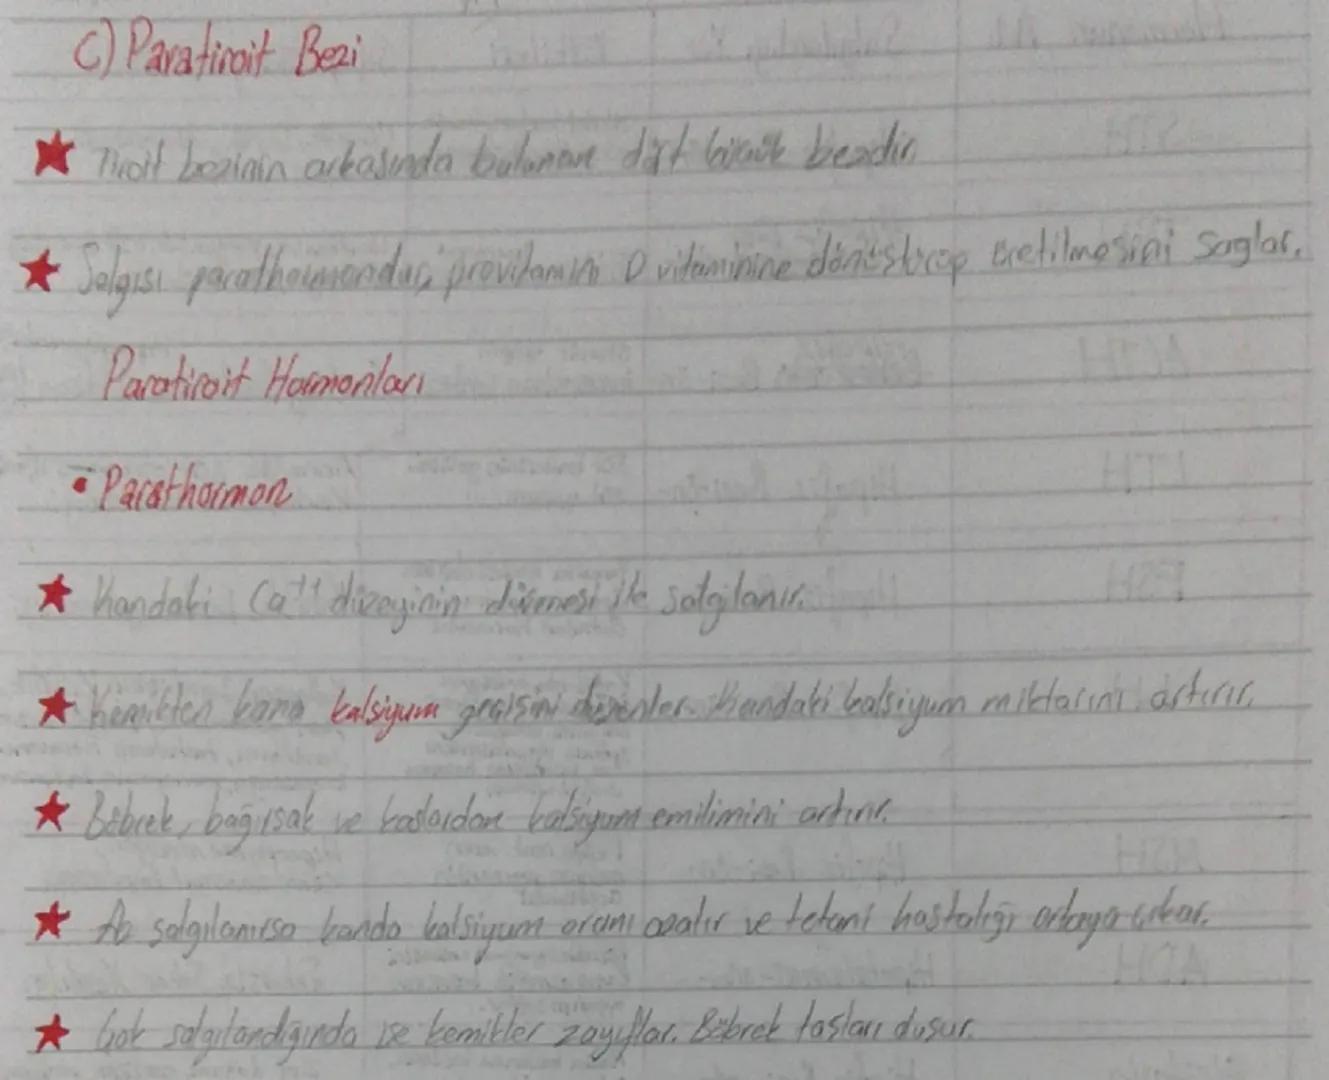 C) Paratiroit Bezi
★ Tiroit bezinin arkasında bulunan dört küçük bezdir.
★ Salgısı parathormondur, provitamini D vitaminine dönüştürüp üretilmesini sağlar.
Paratiroit Hormonları
• Parathormon
★ Kandaki Ca++ düzeyinin düşmesi ile salgılanır.
★ Kemikten kana kalsiyum geçişini düzenler. Kandaki kalsiyum miktarını artırır.
★ Böbrek, bağırsak ve kaslardan kalsiyum emilimini artırır.
★ Az salgılanırsa kanda kalsiyum oranı azalır ve tetani hastalığı ortaya çıkar.
★ Çok salgılandığında ise kemikler zayıflar. Böbrek taşları oluşur.